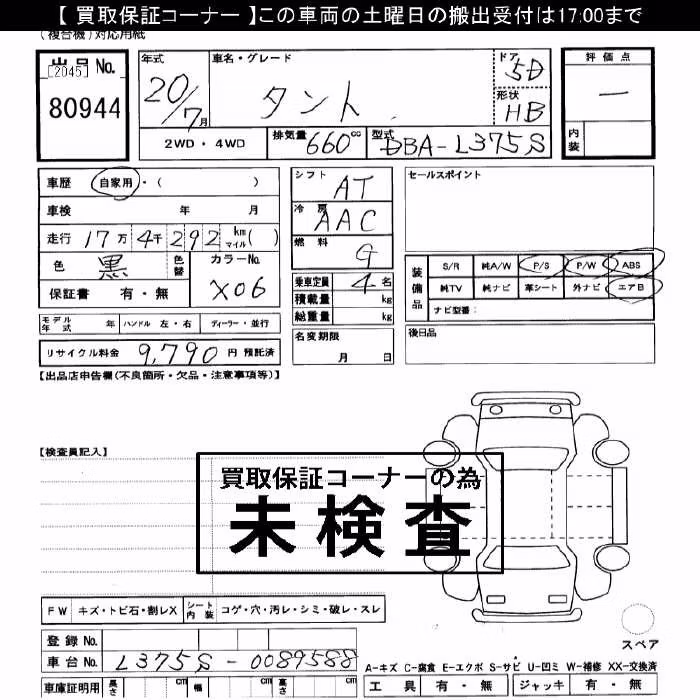 【 買取保証コーナー 】この車両の土曜日の搬出受付は17:00まで
(複合機)対応用紙
出品No.
[2045]
80944
年式 20/7月
車名・グレード
タント
ドア 5D
形状 HB
評価点
一
内装
2WD・4WD
排気量 660cc
型式 DBA-L375S
車歴 自家用・( )
車検 年 月
走行 17万 4千 292 km マイル( )
色 黒 色替 カラーNo. X06
保証書 有・無
シフト AT
冷房 AAC
燃料 G
乗車定員 4名
積載量 kg
総重量 kg
セールスポイント
装備品
S/R 純A/W P/S P/W ABS
純TV 純ナビ 革シート 外ナビ エアB
ナビ型番:
モデル年式 年 ハンドル 左・右 ディーラー・並行
名変期限 月 日
後日品
リサイクル料金 9,790 円 預託済
【出品店申告欄(不良箇所・欠品・注意事項等)】
【検査員記入】
買取保証コーナーの為
未検査
FW キズ・トビ石・割レX シート内装 コゲ・穴・汚レ・シミ・破レ・スレ
スペア
登録No.
車台No. L375S-0089588
A-キズ C-腐食 E-エクボ S-サビ U-凹ミ W-補修 XX-交換済
車庫証明用 長さ cm 幅 cm 高さ cm
工具 有・無 ジャッキ 有・無